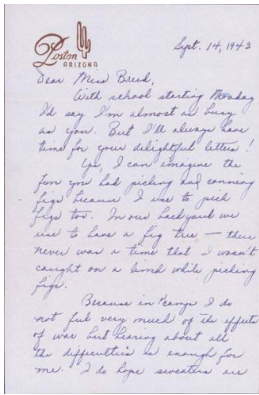 Poston
ARIZONA
Sept. 14, 1943
Dear Miss Breed,
With school starting Monday
I'd say I'm almost as busy
as you. But I'll always have
time for your delightful letters!
Yes, I can imagine the
fun you had picking and canning
figs because I use to pick
figs too. In our backyard we
use to have a fig tree — there
never was a time that I wasn't
caught on a limb while picking
figs.
Because in Camp I do
not feel very much of the effects
of war but hearing about all
the difficulties is enough for
me. I do hope sweaters are